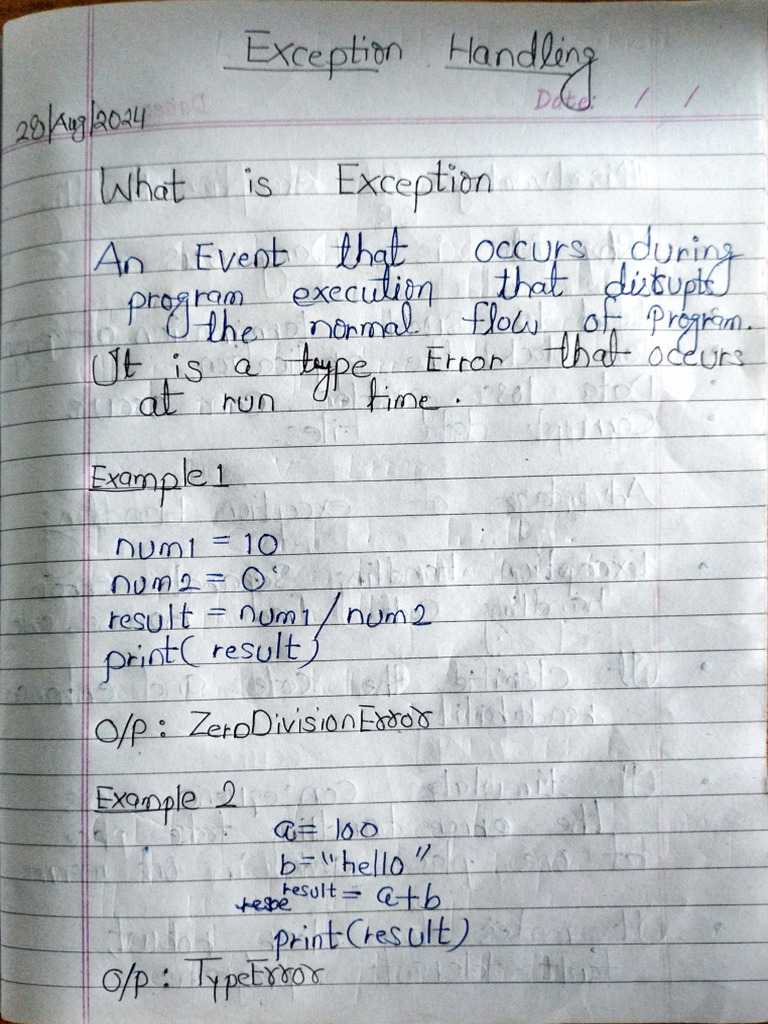 Exception Handling
Date: / /
29/Aug/2024
What is Exception
An Event that occurs during
program execution that disrupts
the normal flow of program.
It is a type Error that occurs
at run time.
Example 1
num1 = 10
num2 = 0
result = num1/num2
print( result)
O/P : ZeroDivisionError
Example 2
a = 100
b = "hello"
result = a+b
print(result)
O/P : TypeError